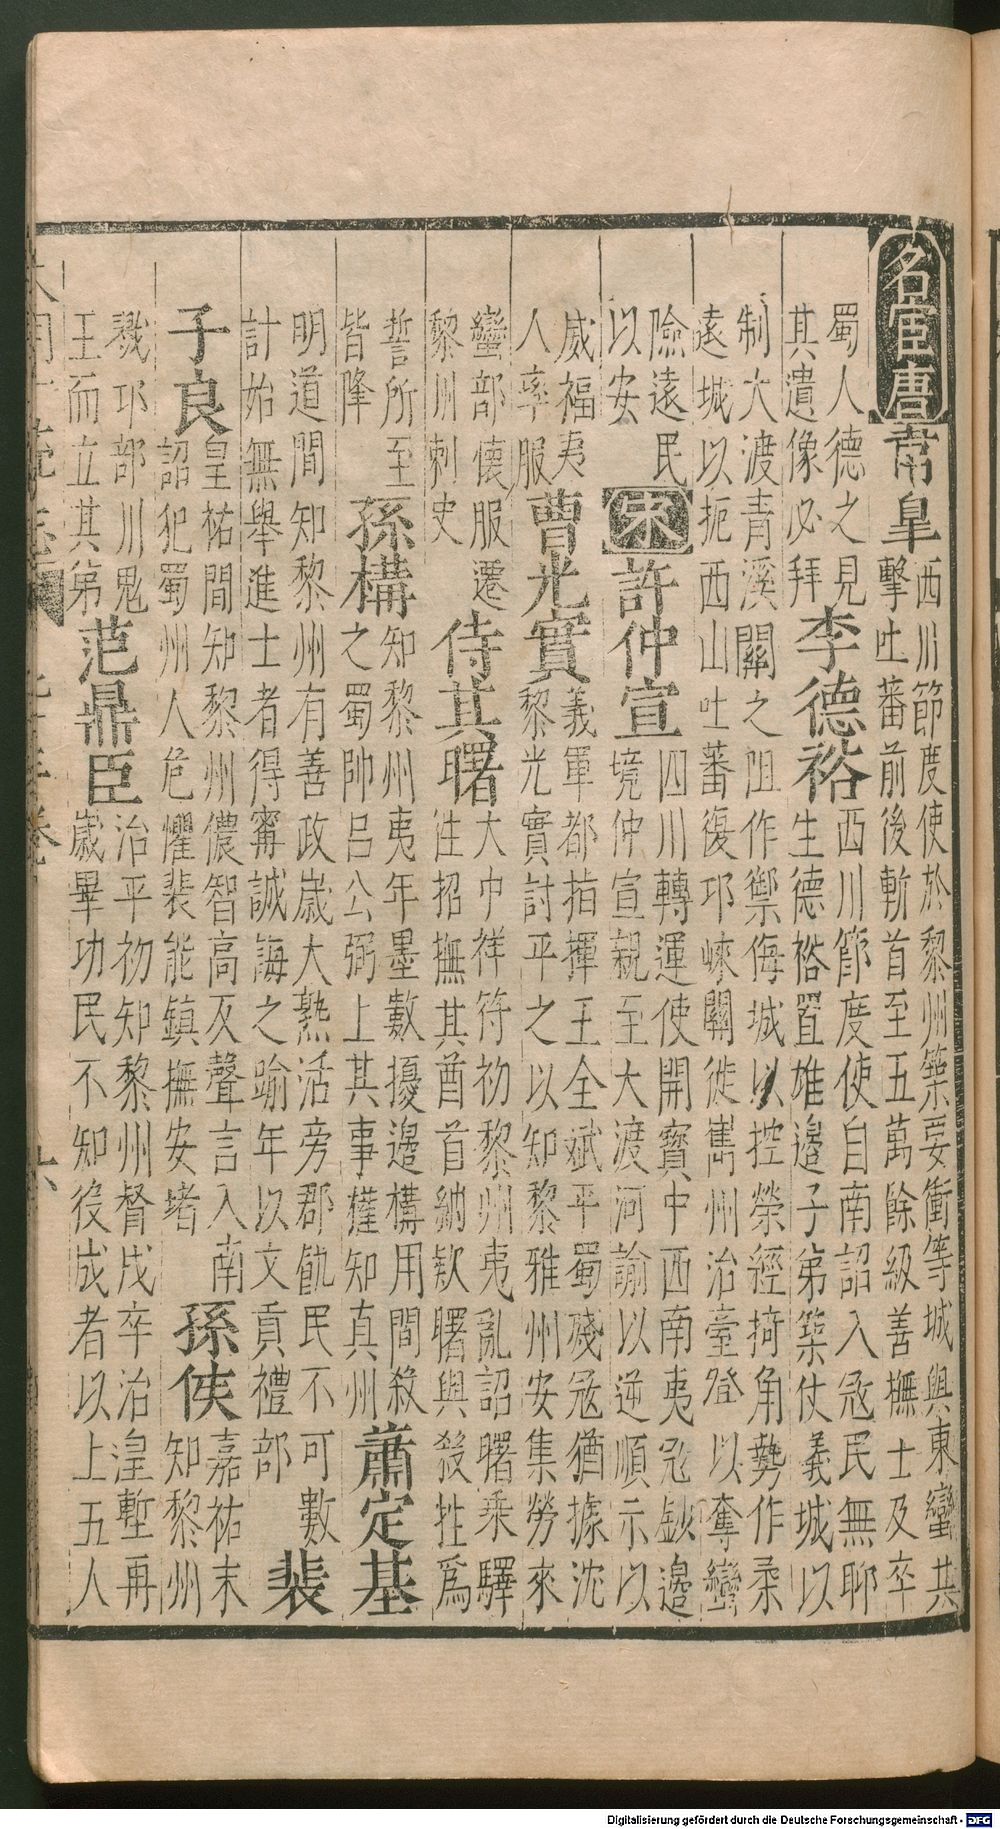 名宦唐韋皐
西川節度使於黎州築要衝等城與東蠻共
擊吐蕃前後斬首至五萬餘級善撫士及卒
蜀人德之見
其遺像必拜
李德裕
西川節度使自南詔入寇民無聊
生德裕置雄邊子弟築仗義城以
制大渡青溪關之阻作禦侮城以控榮經掎角勢作柔
遠城以扼西山吐蕃復邛崍關徙雟州治臺登以奪蠻
險遠民
以安
宋許仲宣
四川轉運使開寶中西南夷寇鈔邊
境仲宣親至大渡河諭以逆順示以
威福夷
人率服
曹光實
義軍都指揮王全斌平蜀殘寇猶據沈
黎光實討平之以知黎雅州安集勞來
蠻部懷服遷
黎州刺史
侍其曙
大中祥符初黎州夷亂詔曙乘驛
往招撫其酋首納欵曙與殺牲爲
誓所至
皆隆
孫構
知黎州夷年墨數擾邊構用間殺
之蜀帥呂公弼上其事權知真州
蕭定基
明道間知黎州有善政歲大熟活旁郡飢民不可數
計始無舉進士者得甯誠誨之踰年以文貢禮部
裴
子良
皇祐間知黎州儂智高反聲言入南
詔犯蜀州人危懼裴能鎮撫安堵
孫
嘉祐末
知黎州
戮邛部川鬼
王而立其弟
范鼎臣
治平初知黎州督戍卒治湟塹再
歲畢功民不知役戍者以上五人
Digitalisierung gefördert durch die Deutsche Forschungsgemeinschaft - DFG